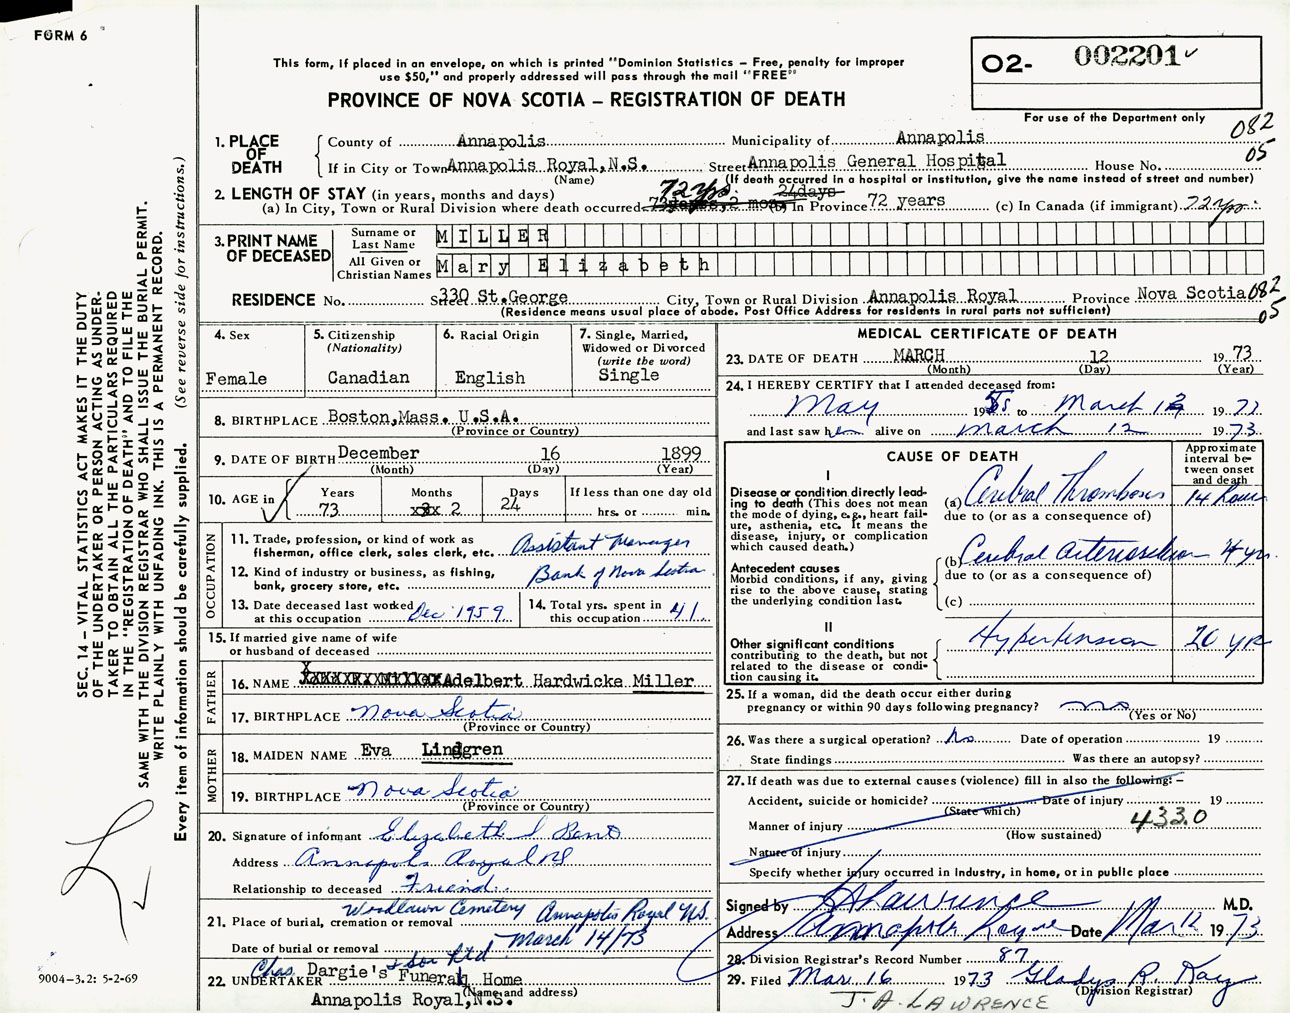 FORM 6
This form, if placed in an envelope, on which is printed "Dominion Statistics – Free, penalty for improper
use $50," and properly addressed will pass through the mail "FREE"
PROVINCE OF NOVA SCOTIA – REGISTRATION OF DEATH
O2- 002201
For use of the Department only
082
05
1. PLACE OF DEATH
County of Annapolis Municipality of Annapolis
If in City or Town Annapolis Royal, N.S. Street Annapolis General Hospital House No.
(Name) (If death occurred in a hospital or institution, give the name instead of street and number)
2. LENGTH OF STAY (in years, months and days) 72 yrs. 24days
(a) In City, Town or Rural Division where death occurred (b) In Province 72 years (c) In Canada (if immigrant) 72 yrs.
3. PRINT NAME OF DECEASED
Surname or Last Name MILLER
All Given or Christian Names Mary Elizabeth
RESIDENCE No. Street 330 St.George City, Town or Rural Division Annapolis Royal Province Nova Scotia 082
05
(Residence means usual place of abode. Post Office Address for residents in rural parts not sufficient)
4. Sex
Female
5. Citizenship
(Nationality)
Canadian
6. Racial Origin
English
7. Single, Married,
Widowed or Divorced
(write the word)
Single
8. BIRTHPLACE Boston,Mass. U.S.A.
(Province or Country)
9. DATE OF BIRTH December 16 1899
(Month) (Day) (Year)
10. AGE in Years 73 Months 2 Days 24 If less than one day old
hrs. or min.
OCCUPATION
11. Trade, profession, or kind of work as
fisherman, office clerk, sales clerk, etc. Assistant Manager
12. Kind of industry or business, as fishing,
bank, grocery store, etc. Bank of Nova Scotia
13. Date deceased last worked
at this occupation Dec 1959
14. Total yrs. spent in
this occupation 41
15. If married give name of wife
or husband of deceased
FATHER
16. NAME Adelbert Hardwicke Miller
17. BIRTHPLACE Nova Scotia
(Province or Country)
MOTHER
18. MAIDEN NAME Eva Lindgren
19. BIRTHPLACE Nova Scotia
(Province or Country)
20. Signature of informant Elizabeth
Address Annapolis Royal NS
Relationship to deceased Friend
21. Place of burial, cremation or removal Woodlawn Cemetery Annapolis Royal N.S.
Date of burial or removal March 14/73
22. UNDERTAKER Chas. Dargie's & Son Ltd Funeral Home
(Name and address)
Annapolis Royal, N.S.
MEDICAL CERTIFICATE OF DEATH
23. DATE OF DEATH MARCH 12 1973
(Month) (Day) (Year)
24. I HEREBY CERTIFY that I attended deceased from:
May 19 to March 19
and last saw her alive on March 12 1973
CAUSE OF DEATH
Approximate
interval be-
tween onset
and death
I
Disease or condition directly lead-
ing to death (This does not mean
the mode of dying, e.g., heart fail-
ure, asthenia, etc. It means the
disease, injury, or complication
which caused death.)
(a) Cerebral Thrombosis 14 hours
due to (or as a consequence of)
Antecedent causes
Morbid conditions, if any, giving
rise to the above cause, stating
the underlying condition last.
(b) Cerebral arteriosclerosis 4 yrs.
due to (or as a consequence of)
(c)
II
Other significant conditions
contributing to the death, but not
related to the disease or condi-
tion causing it.
Hypertension 20 yrs
25. If a woman, did the death occur either during
pregnancy or within 90 days following pregnancy? no
(Yes or No)
26. Was there a surgical operation? No Date of operation 19
State findings Was there an autopsy?
27. If death was due to external causes (violence) fill in also the following:–
Accident, suicide or homicide? Date of injury 19
(State which)
Manner of injury 433.0
(How sustained)
Nature of injury
Specify whether injury occurred in industry, in home, or in public place
Signed by Lawrence M.D.
Address Annapolis Royal Date Mar 12 1973
28. Division Registrar's Record Number 87
29. Filed Mar. 16 1973 Gladys R. Kay
(Division Registrar)
J. A. LAWRENCE
SEC. 14 – VITAL STATISTICS ACT MAKES IT THE DUTY
OF THE UNDERTAKER OR PERSON ACTING AS UNDER-
TAKER TO OBTAIN ALL THE PARTICULARS REQUIRED
IN THE "REGISTRATION OF DEATH" AND TO FILE THE
SAME WITH THE DIVISION REGISTRAR WHO SHALL ISSUE THE BURIAL PERMIT.
WRITE PLAINLY WITH UNFADING INK. THIS IS A PERMANENT RECORD.
Every item of information should be carefully supplied. (See reverse side for instructions.)
9004–3.2: 5-2-69